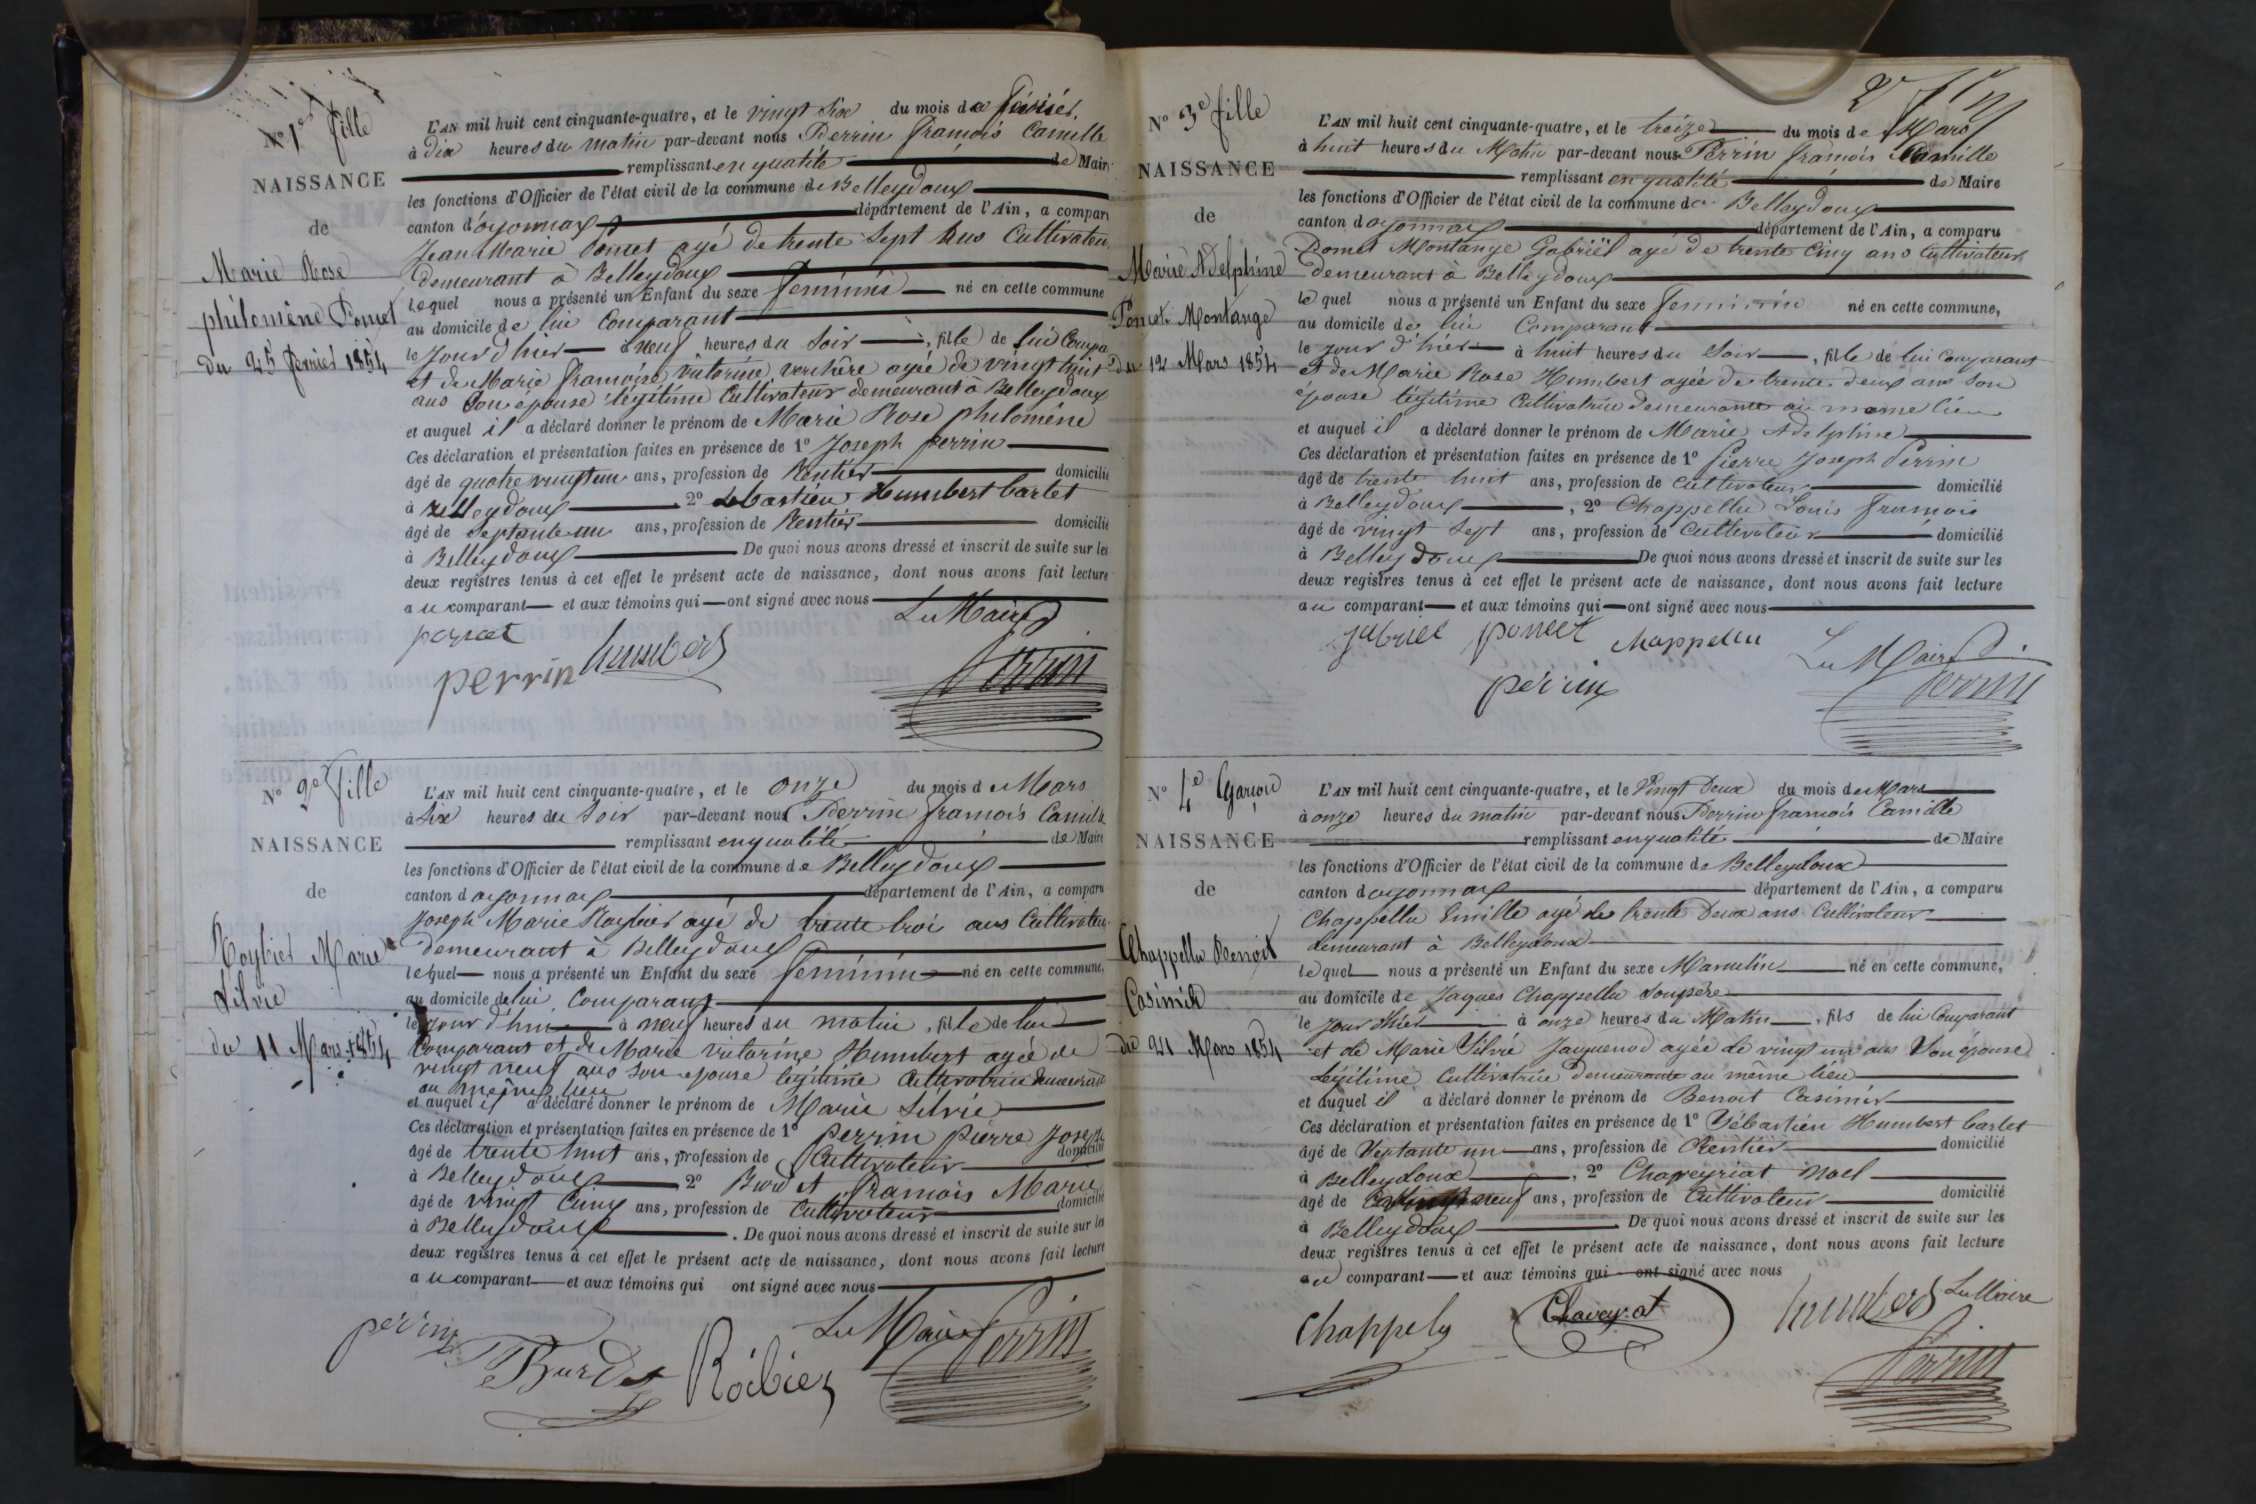 N° 1e fille
NAISSANCE
de
Marie Rose
philomène Poncet
du 25 février 1854
L'AN mil huit cent cinquante-quatre, et le vingt six du mois de février
à dix heures du matin par-devant nous Perrin françois Camille
remplissant en qualité de Maire
les fonctions d'Officier de l'état civil de la commune de Belleydoux
canton d'oyonnax département de l'Ain, a comparu
Jean Marie Poncet agé de trente Sept Ans Cultivateur
demeurant à Belleydoux
lequel nous a présenté un Enfant du sexe feminin né en cette commune
au domicile de lui Comparant
le Jour d'hier à neuf heures du Soir, fille de lui Compa
et de Marie françoise victorine verchère agée de vingt huit
ans Son épouse légitime Cultivateur demeurant à Belleydoux
et auquel il a déclaré donner le prénom de Marie Rose philomène
Ces déclaration et présentation faites en présence de 1° Joseph perrin
âgé de quatre vingt un ans, profession de Rentier domicilié
à Belleydoux 2° Sebastien Humbert Carlet
âgé de septante un ans, profession de Rentier domicilié
à Belleydoux De quoi nous avons dressé et inscrit de suite sur les
deux registres tenus à cet effet le présent acte de naissance, dont nous avons fait lecture
au comparant et aux témoins qui ont signé avec nous
Le Maire
poncet
perrin humbert Perrin
N° 2e fille
NAISSANCE
de
Roybier Marie
Silvie
du 11 Mars 1854
L'AN mil huit cent cinquante-quatre, et le onze du mois de Mars
à Six heures du Soir par-devant nous Perrin françois Camille
remplissant en qualité de Maire
les fonctions d'Officier de l'état civil de la commune de Belleydoux
canton d'oyonnax département de l'Ain, a comparu
Joseph Marie Roybier agé de trente troi ans Cultivateur
demeurant à Belleydoux
lequel nous a présenté un Enfant du sexe feminin né en cette commune,
au domicile de lui Comparant
le jour d'hui à neuf heures du matin, fille de lui
Comparant et de Marie victorine Humbert agée de
vingt neuf ans Son epouse legitime Cultivatrice demeurant
au même lieu
et auquel il a déclaré donner le prénom de Marie Silvie
Ces déclaration et présentation faites en présence de 1° perrin pierre Joseph
âgé de trente huit ans, profession de Cultivateur domicilié
à Belleydoux 2° Burdet françois Marie
âgé de vingt Cinq ans, profession de Cultivateur domicilié
à Belleydoux. De quoi nous avons dressé et inscrit de suite sur les
deux registres tenus à cet effet le présent acte de naissance, dont nous avons fait lecture
au comparant et aux témoins qui ont signé avec nous
perrin Burdet Roibier Le Maire Perrin
2
N° 3e fille
NAISSANCE
de
Marie Adelphine
Poncet Montange
du 12 Mars 1854
L'AN mil huit cent cinquante-quatre, et le treize du mois de Mars
à huit heures du Matin par-devant nous Perrin françois Camille
remplissant en qualité de Maire
les fonctions d'Officier de l'état civil de la commune de Belleydoux
canton d'oyonnax département de l'Ain, a comparu
Poncet Montange Gabriël agé de trente Cinq ans Cultivateur
demeurant à Belleydoux
lequel nous a présenté un Enfant du sexe feminin né en cette commune,
au domicile de lui Comparant
le jour d'hier à huit heures du Soir, fille de lui Comparant
et de Marie Rose Humbert agée de trente deux ans Son
épouse légitime Cultivatrice demeurante au même lieu
et auquel il a déclaré donner le prénom de Marie Adelphine
Ces déclaration et présentation faites en présence de 1° Pierre Joseph Perrin
âgé de trente huit ans, profession de Cultivateur domicilié
à Belleydoux, 2° Chappellu Louis françois
âgé de vingt Sept ans, profession de Cultivateur domicilié
à Belleydoux De quoi nous avons dressé et inscrit de suite sur les
deux registres tenus à cet effet le présent acte de naissance, dont nous avons fait lecture
au comparant et aux témoins qui ont signé avec nous
gabriel poncet chappellu Le Maire
perrin Perrin
N° 4e Garçon
NAISSANCE
de
Chappellu Benoit
Casimir
du 21 Mars 1854
L'AN mil huit cent cinquante-quatre, et le Vingt Deux du mois de Mars
à onze heures du matin par-devant nous Perrin françois Camille
remplissant en qualité de Maire
les fonctions d'Officier de l'état civil de la commune de Belleydoux
canton d'oyonnax département de l'Ain, a comparu
Chappellu Emille agé de trente Deux ans Cultivateur
demeurant à Belleydoux
lequel nous a présenté un Enfant du sexe Masculin né en cette commune,
au domicile de Jaques Chappellu Son père
le jour d'hier à onze heures du Matin, fils de lui Comparant
et de Marie Silvie Jacquenod agée de vingt un ans Son épouse
Légitime Cultivatrice demeurante au même lieu
et auquel il a déclaré donner le prénom de Benoit Casimir
Ces déclaration et présentation faites en présence de 1° Sébastien Humbert Carlet
âgé de Septante un ans, profession de Rentier domicilié
à Belleydoux, 2° Chaveyriat Noel
âgé de neuf ans, profession de Cultivateur domicilié
à Belleydoux. De quoi nous avons dressé et inscrit de suite sur les
deux registres tenus à cet effet le présent acte de naissance, dont nous avons fait lecture
au comparant et aux témoins qui ont signé avec nous
Chappelu Chaveyriat humbert Le Maire
Perrin